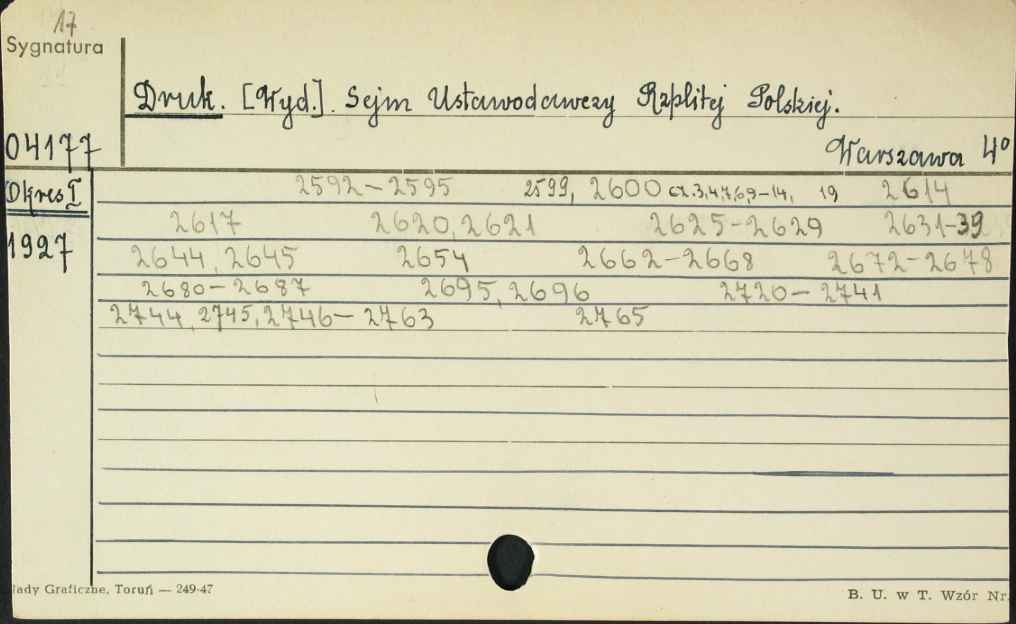 17
Sygnatura
Druk. [Wyd.]. Sejm Ustawodawczy Rzplitej Polskiej.
04177
Warszawa 4°
Okres I
2592-2595 2599, 2600 cz. 3,4,7,6,9-14, 19 2614
1927
2617 2620, 2621 2625-2629 2631-39
2644, 2645 2654 2662-2668 2672-2678
2680-2687 2695, 2696 2720-2741
2744, 2745, 2746-2763 2765
łady Graficzne, Toruń — 249-47
B. U. w T. Wzór Nr.